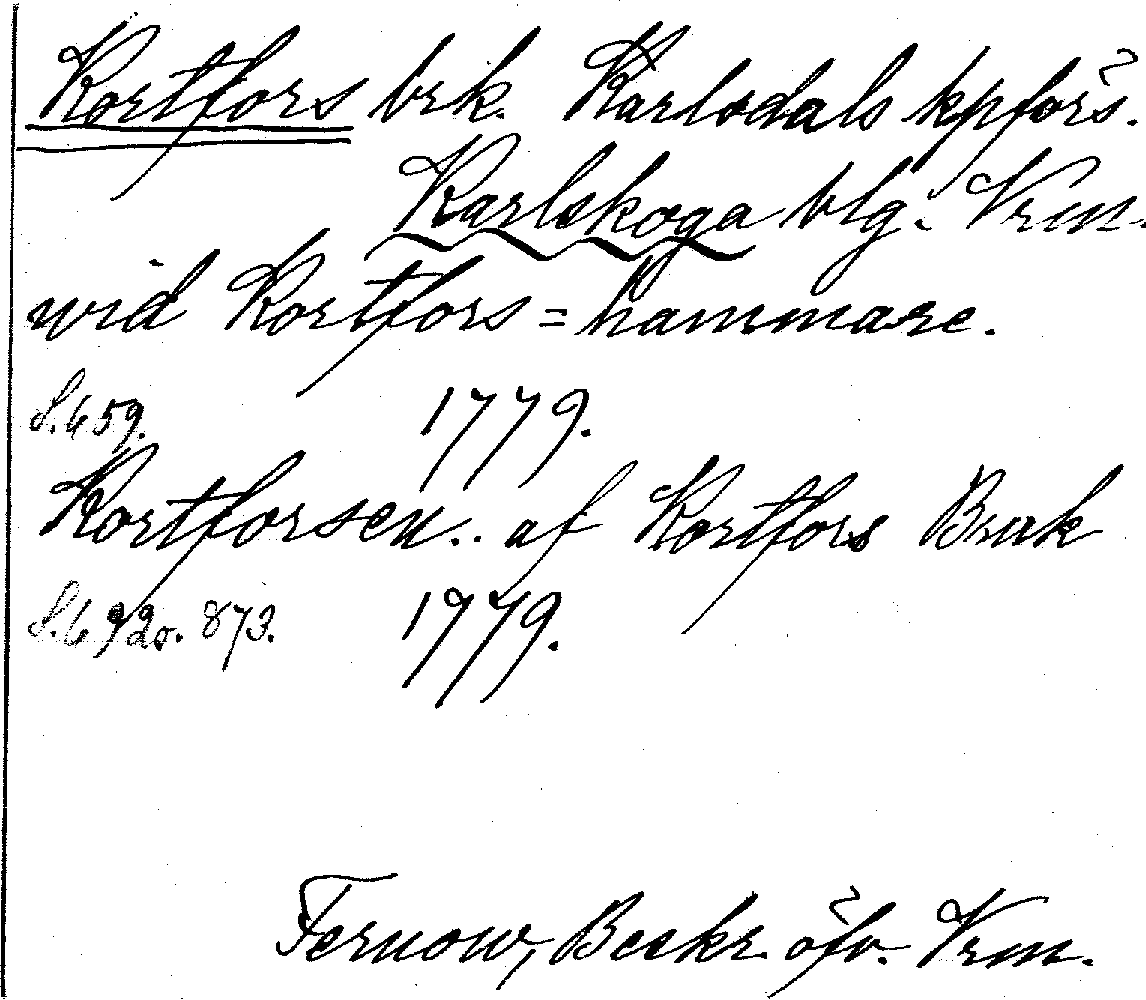 Kortfors brk. Karlsdals kpförs.
Karlskoga blg. Vrm.
wid Kortfors=hammare.
S. 659. 1779.
Kortforsen.. af Kortfors Bruk
S. 692o. 873. 1779.
Fernow, Beskr. öfv. Vrm.